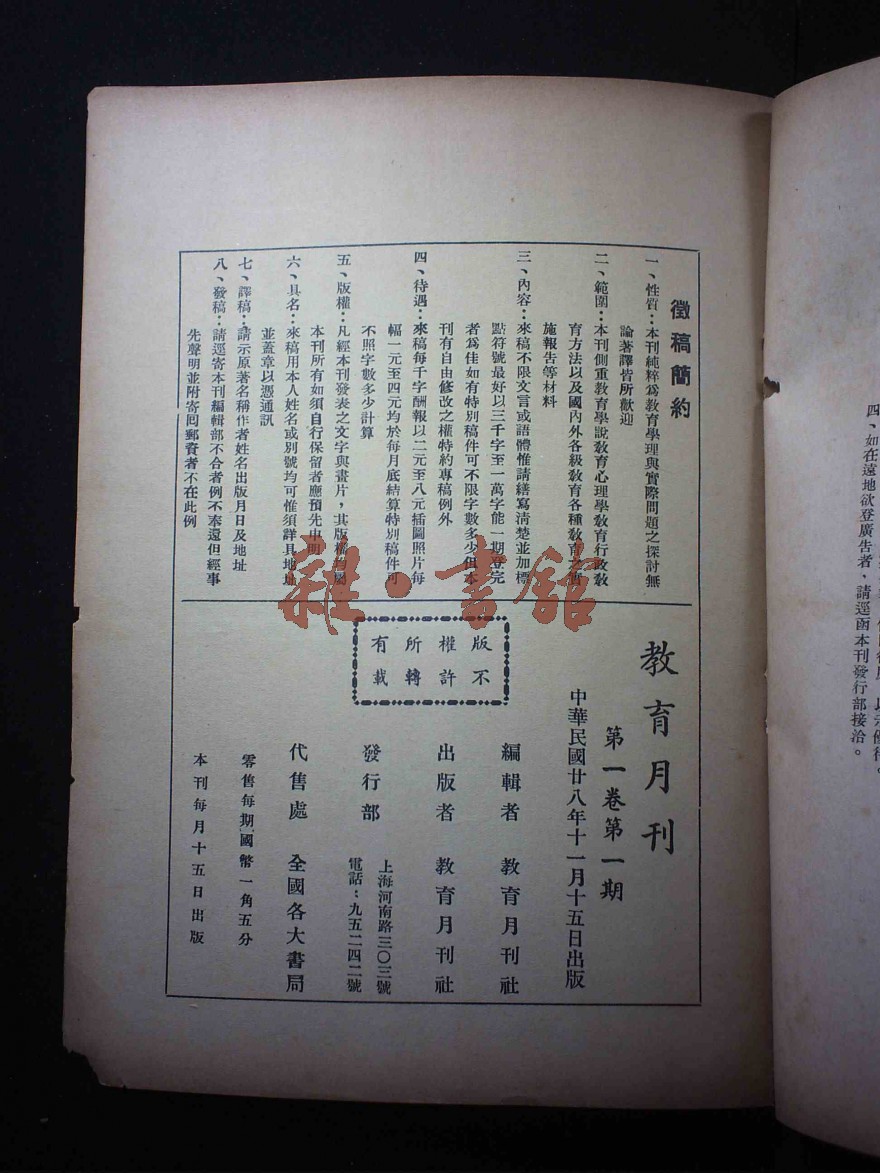 徵稿簡約
一、性質：本刊純粹為教育學理與實際問題之探討無
論著譯皆所歡迎
二、範圍：本刊側重教育學說教育心理學教育行政教
育方法以及國內外各級教育各種教育之實
施報告等材料
三、內容：來稿不限文言或語體惟請繕寫清楚並加標
點符號最好以三千字至一萬字能一期登完
者為佳如有特別稿件可不限字數多少但本
刊有自由修改之權特約專稿例外
四、待遇：來稿每千字酬報以二元至八元插圖照片每
幅一元至四元均於每月底結算特別稿件可
不照字數多少計算
五、版權：凡經本刊發表之文字與畫片，其版權均屬
本刊所有如須自行保留者應預先申明
六、具名：來稿用本人姓名或別號均可惟須詳具地址
並蓋章以憑通訊
七、譯稿：請示原著名稱作者姓名出版月日及地址
八、發稿：請逕寄本刊編輯部不合者例不奉還但經事
先聲明並附寄囘郵資者不在此例
教育月刊
第一卷第一期
中華民國廿八年十一月十五日出版
編輯者 教育月刊社
出版者 教育月刊社
發行部 上海河南路三〇三號
電話：九五二四二號
代售處 全國各大書局
零售每期國幣一角五分
本刊每月十五日出版
版不
權許
所轉
有載
雜·書館
四、如在遠地欲登廣告者，請逕函本刊發行部接洽。